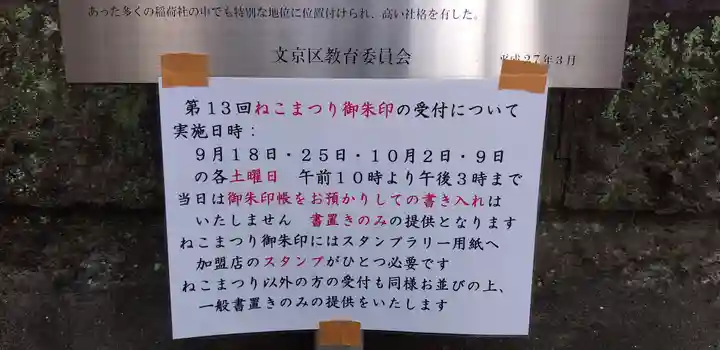 あった多くの稲荷社の中でも特別な地位に位置付けられ、高い社格を有した。
文京区教育委員会
平成27年3月
第13回ねこまつり御朱印の受付について
実施日時：
9月18日・25日・10月2日・9日
の各土曜日　午前10時より午後3時まで
当日は御朱印帳をお預かりしての書き入れは
いたしません　書置きのみの提供となります
ねこまつり御朱印にはスタンプラリー用紙へ
加盟店のスタンプがひとつ必要です
ねこまつり以外の方の受付も同様お並びの上、
一般書置きのみの提供をいたします